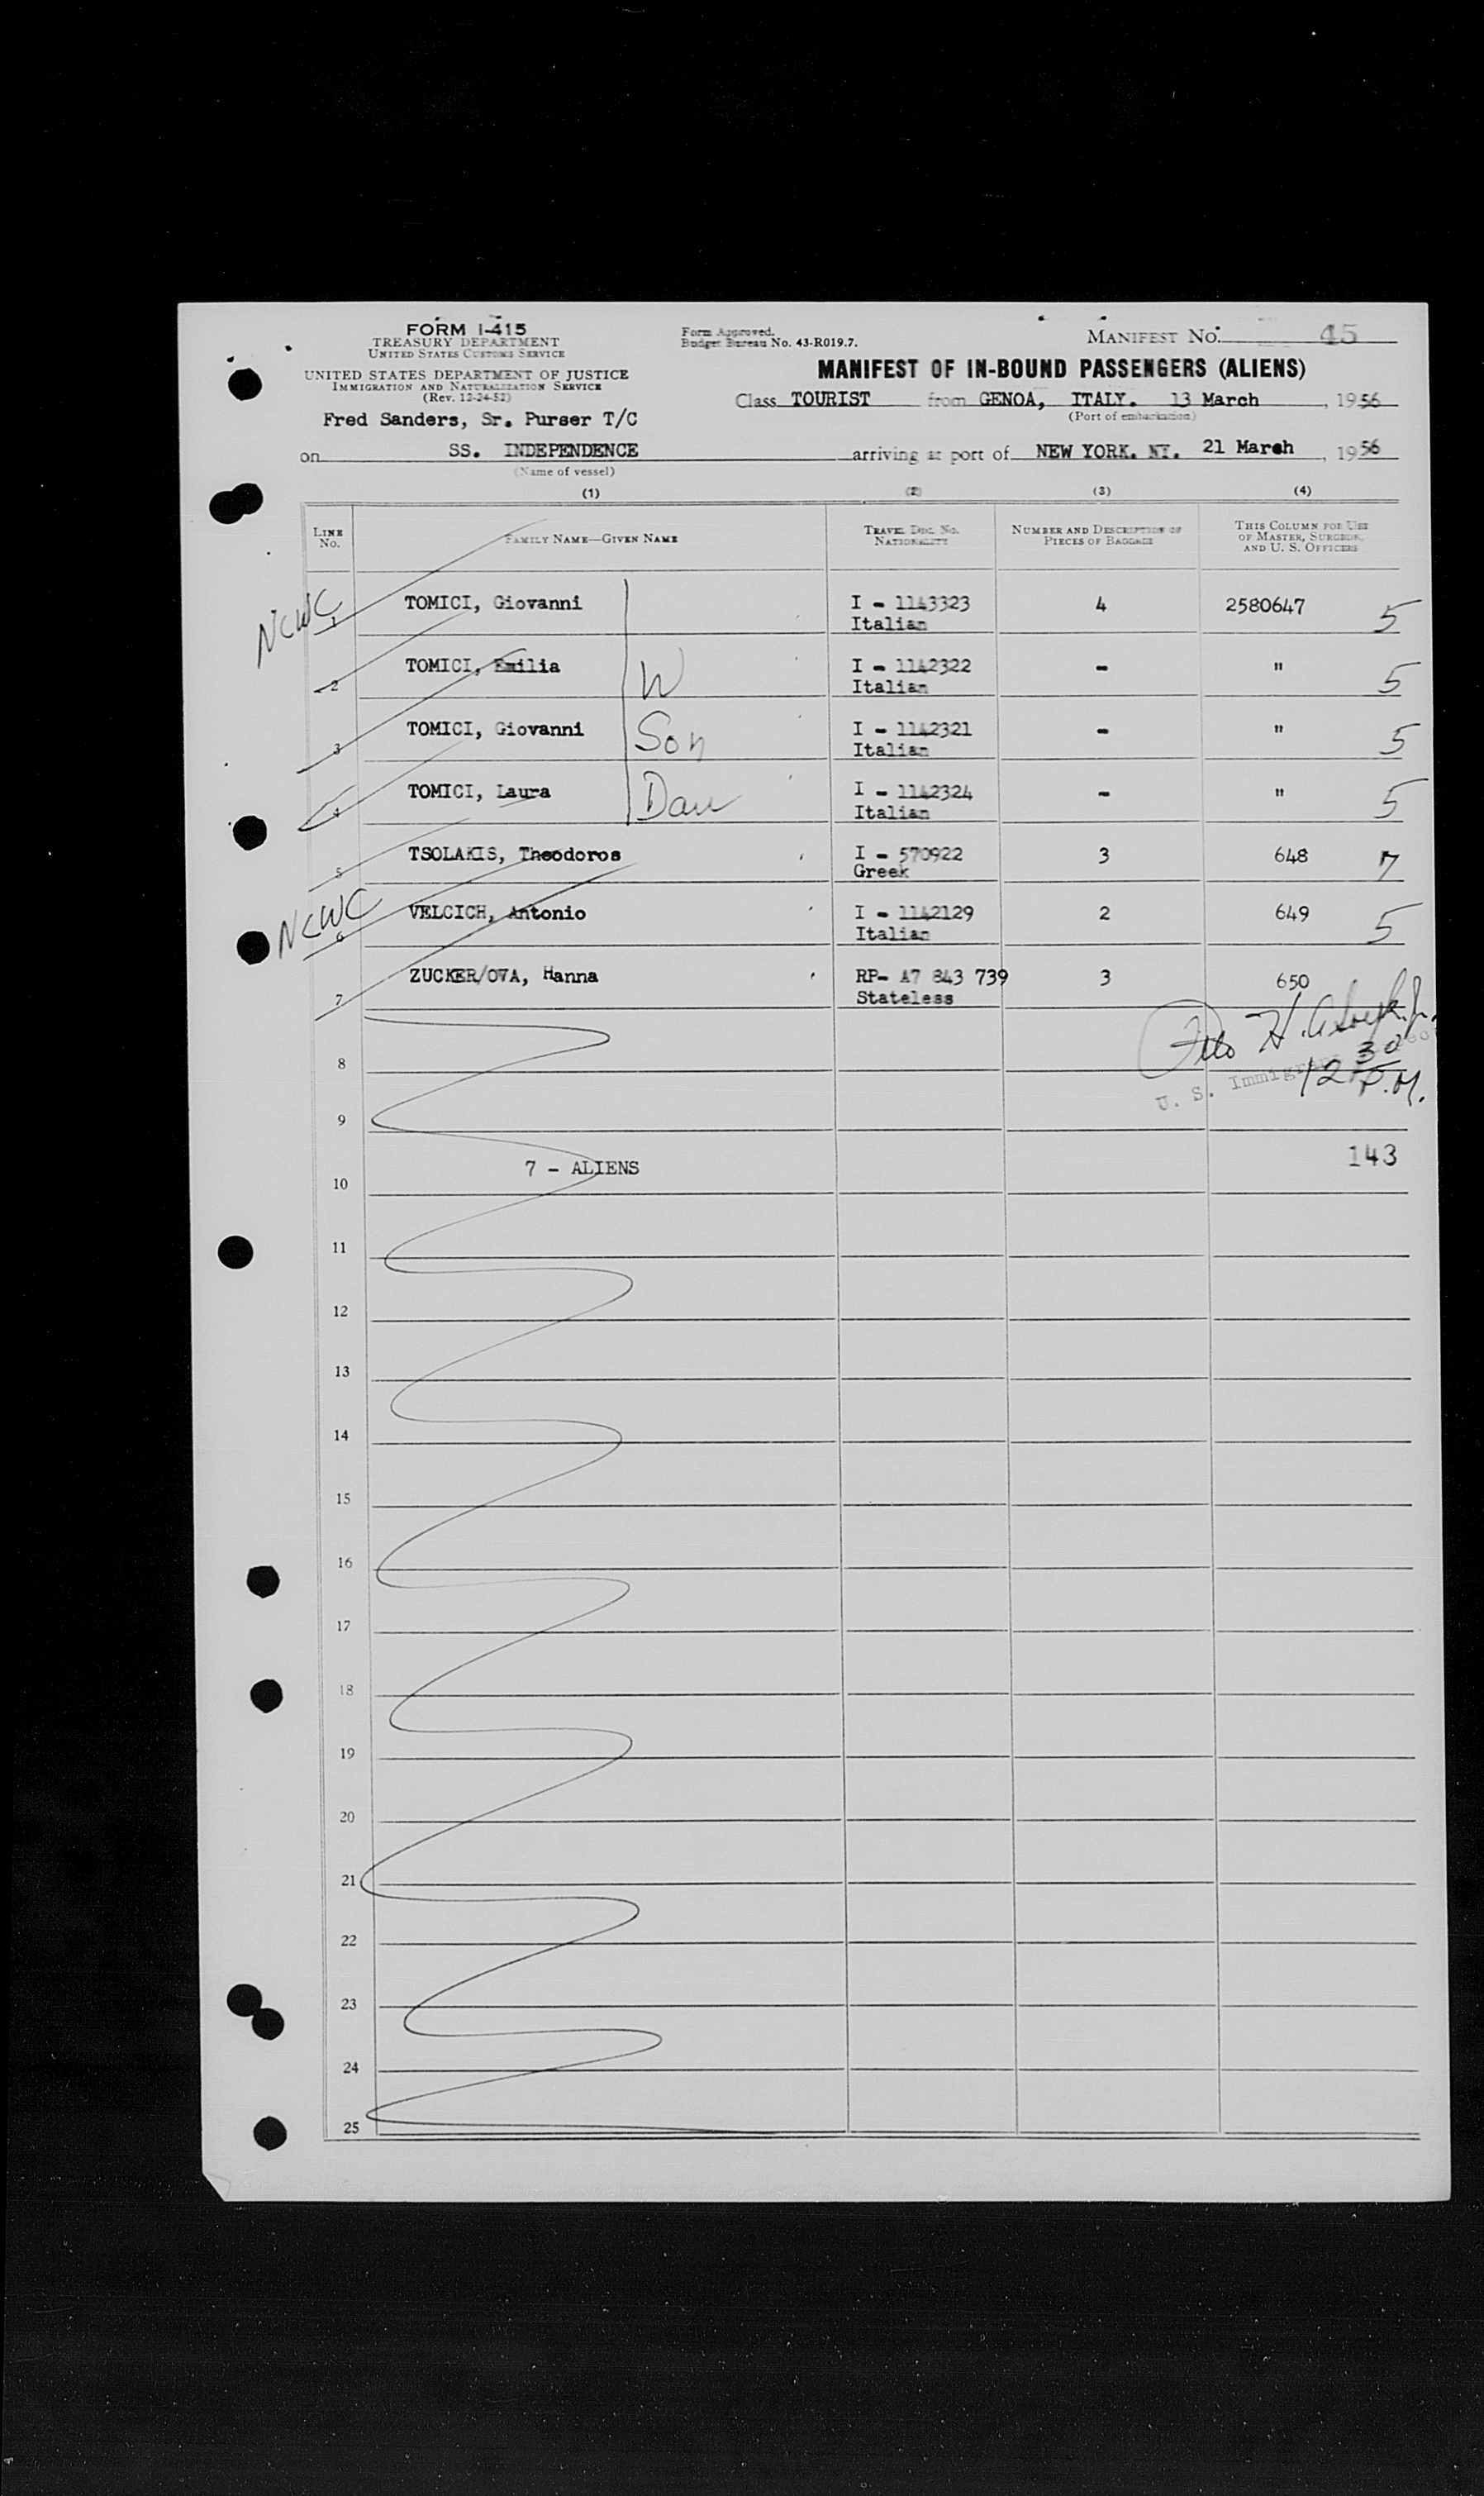 FORM I-415
TREASURY DEPARTMENT
UNITED STATES CUSTOMS SERVICE
UNITED STATES DEPARTMENT OF JUSTICE
IMMIGRATION AND NATURALIZATION SERVICE
(Rev. 12-24-52)
Form Approved.
Budget Bureau No. 43-R019.7.
MANIFEST No. 45
MANIFEST OF IN-BOUND PASSENGERS (ALIENS)
Class TOURIST from GENOA, ITALY. 13 March, 1956
(Port of embarkation)
Fred Sanders, Sr. Purser T/C
on SS. INDEPENDENCE arriving at port of NEW YORK. NY. 21 March, 1956
(Name of vessel)
(1) (2) (3) (4)
LINE No. FAMILY NAME—GIVEN NAME TRAVEL DOC. NO. NATIONALITY NUMBER AND DESCRIPTION OF PIECES OF BAGGAGE THIS COLUMN FOR USE OF MASTER, SURGEON, AND U. S. OFFICERS
NCWC 1 TOMICI, Giovanni I - 1143323 4 2580647 5
Italian
2 TOMICI, Emilia W I - 1142322 - " 5
Italian
3 TOMICI, Giovanni Son I - 1142321 - " 5
Italian
4 TOMICI, Laura Dau I - 1142324 - " 5
Italian
5 TSOLAKIS, Theodoros I - 570922 3 648 7
Greek
NCWC 6 VELCICH, Antonio I - 1142129 2 649 5
Italian
7 ZUCKER/OVA, Hanna RP- A7 843 739 3 650
Stateless
H.
8 U. S. 12 30 P.M.
9
10 7 - ALIENS 143
11
12
13
14
15
16
17
18
19
20
21
22
23
24
25